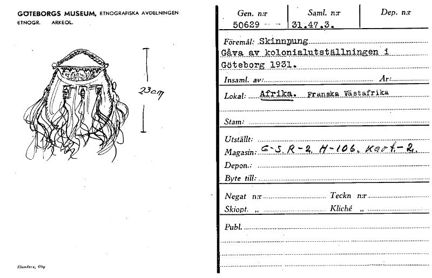 GÖTEBORGS MUSEUM, ETNOGRAFISKA AVDELNINGEN.
ETNOGR. ARKEOL.
23cm
Elanders, Gbg
Gen. n:r Saml. n:r Dep. n:r
50629 31.47.3.
Föremål: Skinnpung
Gåva av kolonialutställningen i
Göteborg 1931.
Insaml. av: År:
Lokal: Afrika. Franska Västafrika
Stam:
Utställt:
Magasin: G-S.R-2. H-106. Kart.-2.
Depon.:
Byte till:
Negat n:r Teckn n:r
Skiopt. „ Kliché „
Publ.